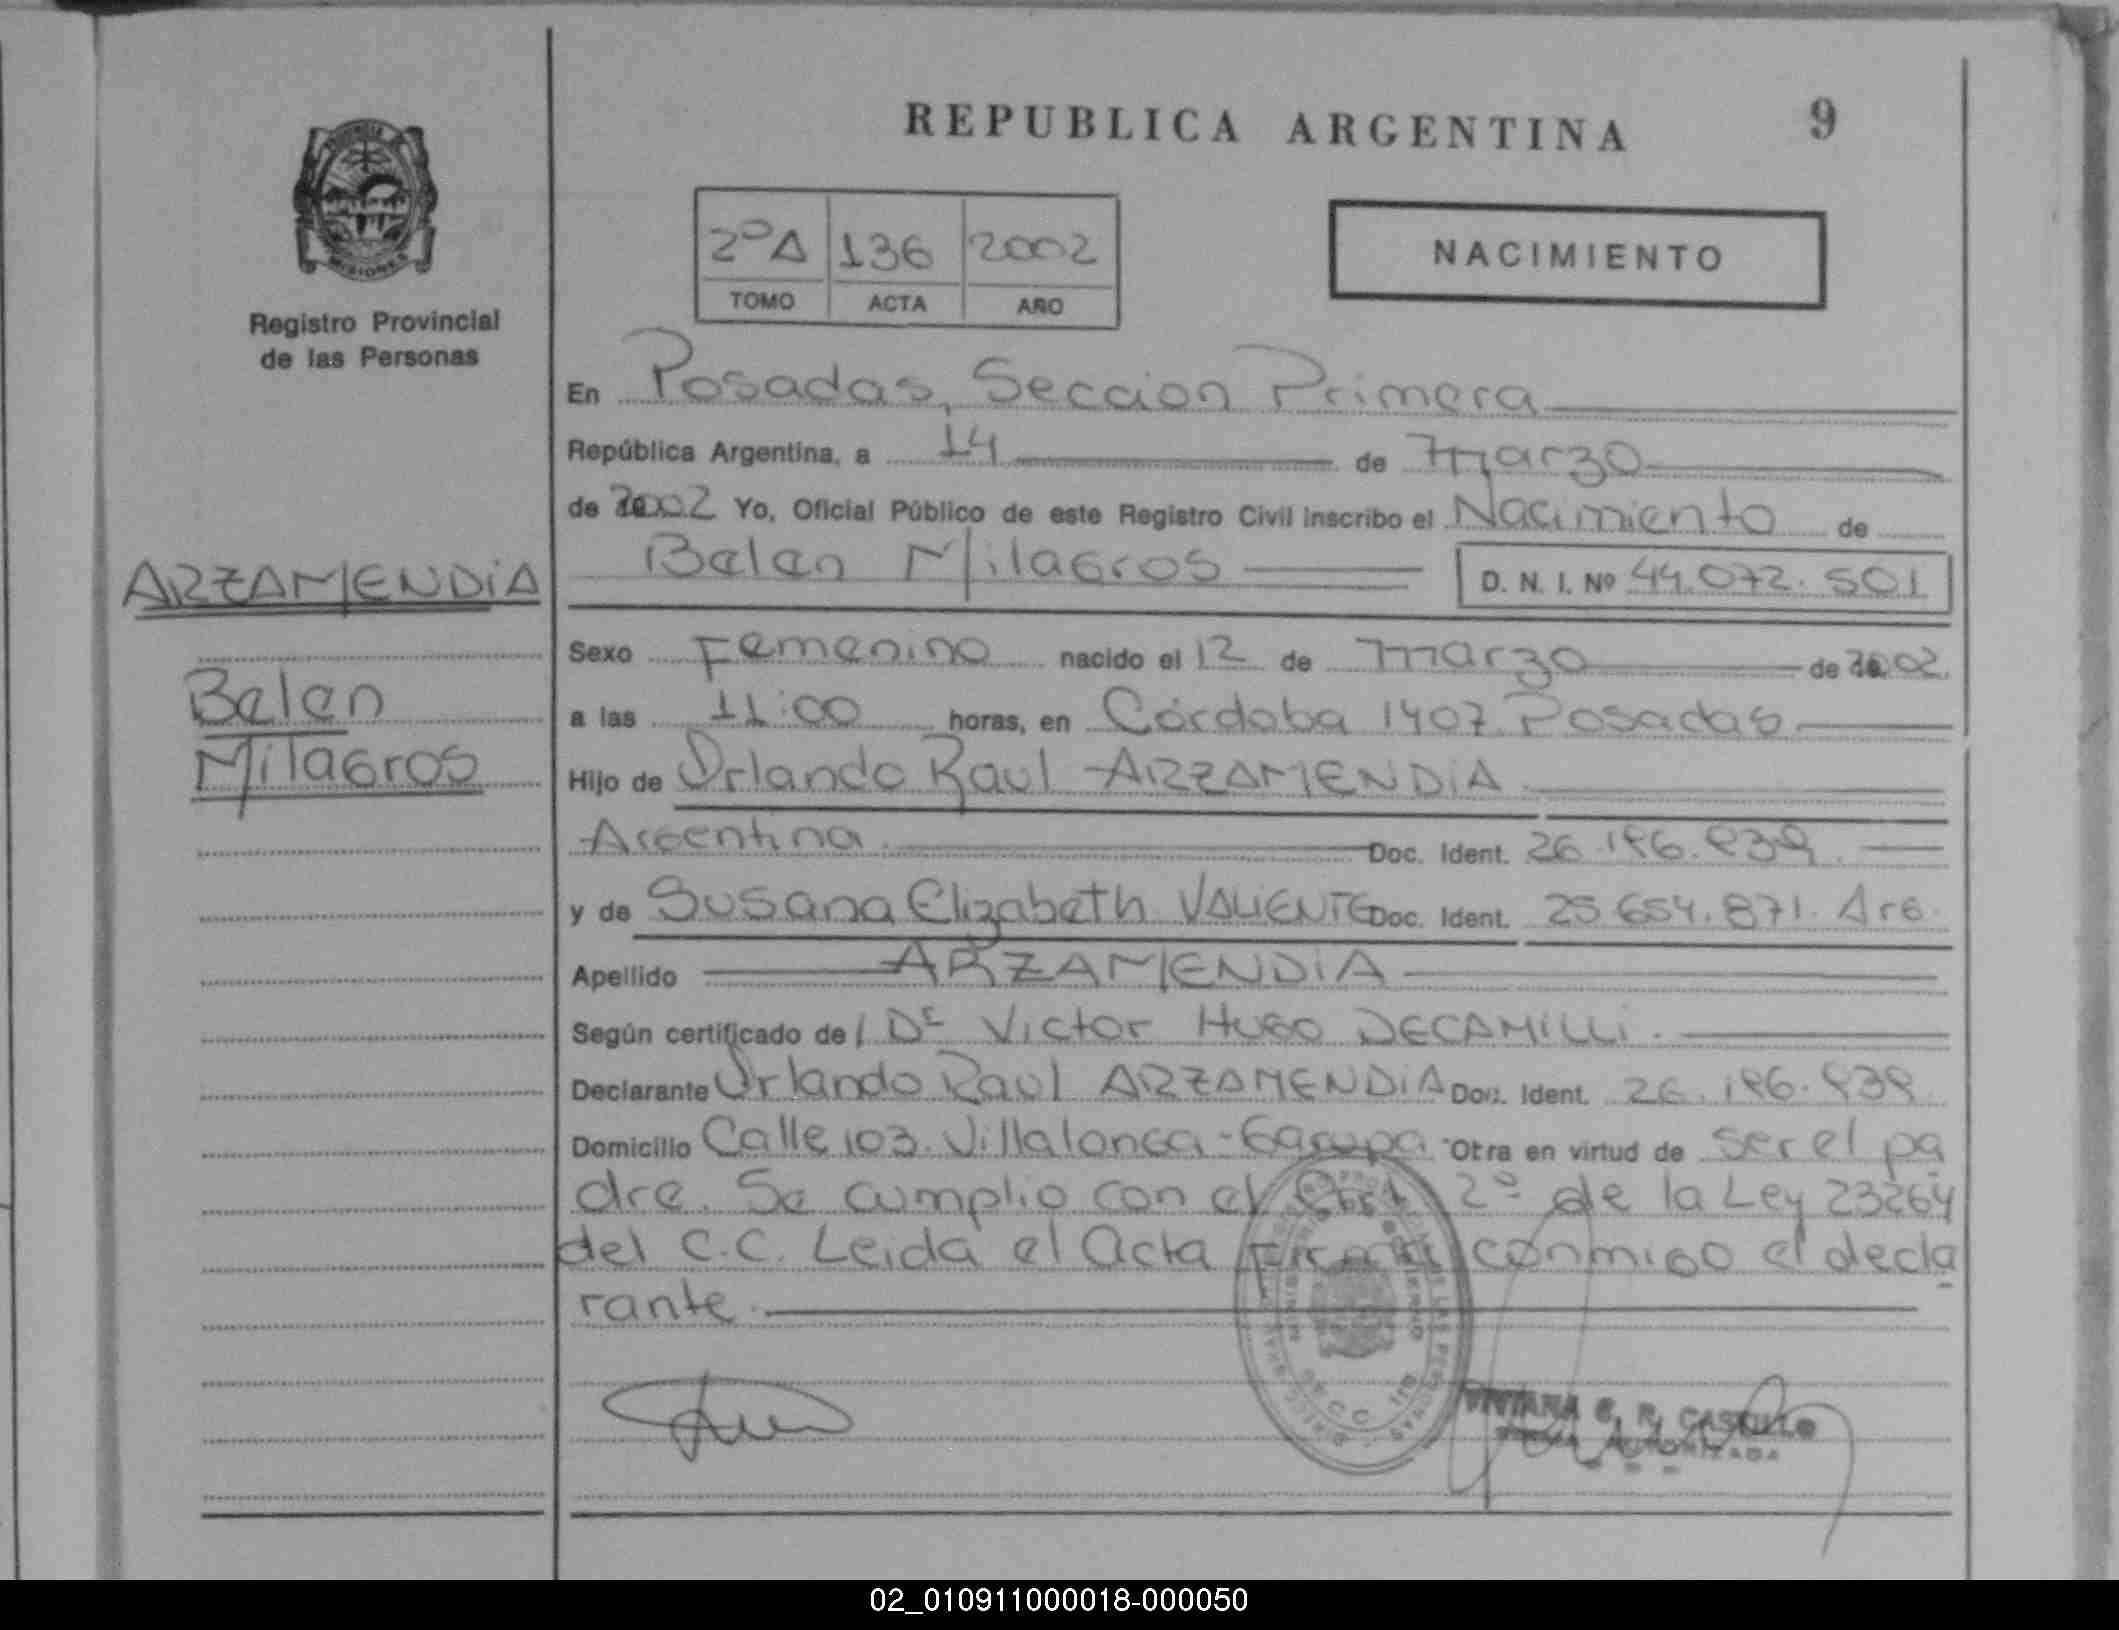 REPUBLICA ARGENTINA 9
MISIONES
Registro Provincial
de las Personas
2º A 136 2002
TOMO ACTA AÑO
NACIMIENTO
En Posadas, Seccion Primera
República Argentina, a 14 de marzo
de 2002 Yo, Oficial Público de este Registro Civil inscribo el Nacimiento de
Belen Milagros D. N. I. Nº 44.072.501
ARZAMENDIA
Belen
Milagros
Sexo Femenino nacido el 12 de marzo de 2002.
a las 11:00 horas, en Córdoba 1407 Posadas
Hijo de Orlando Raul ARZAMENDIA
Argentina Doc. Ident. 26.186.839
y de Susana Elizabeth VALIENTE Doc. Ident. 25.654.871. Arg.
Apellido ARZAMENDIA
Según certificado de l Dr Victor Hugo DECAMILLI.
Declarante Orlando Raul ARZAMENDIA Doc. Ident. 26.186.839
Domicilio Calle 103. Villalonga - Garupa Otra en virtud de ser el pa
dre. Se cumplio con el 2º de la Ley 23264
del C.C. Leida el Acta conmigo el decla
rante.
C. R. CASTILLO
AUTORIZADA
02_010911000018-000050